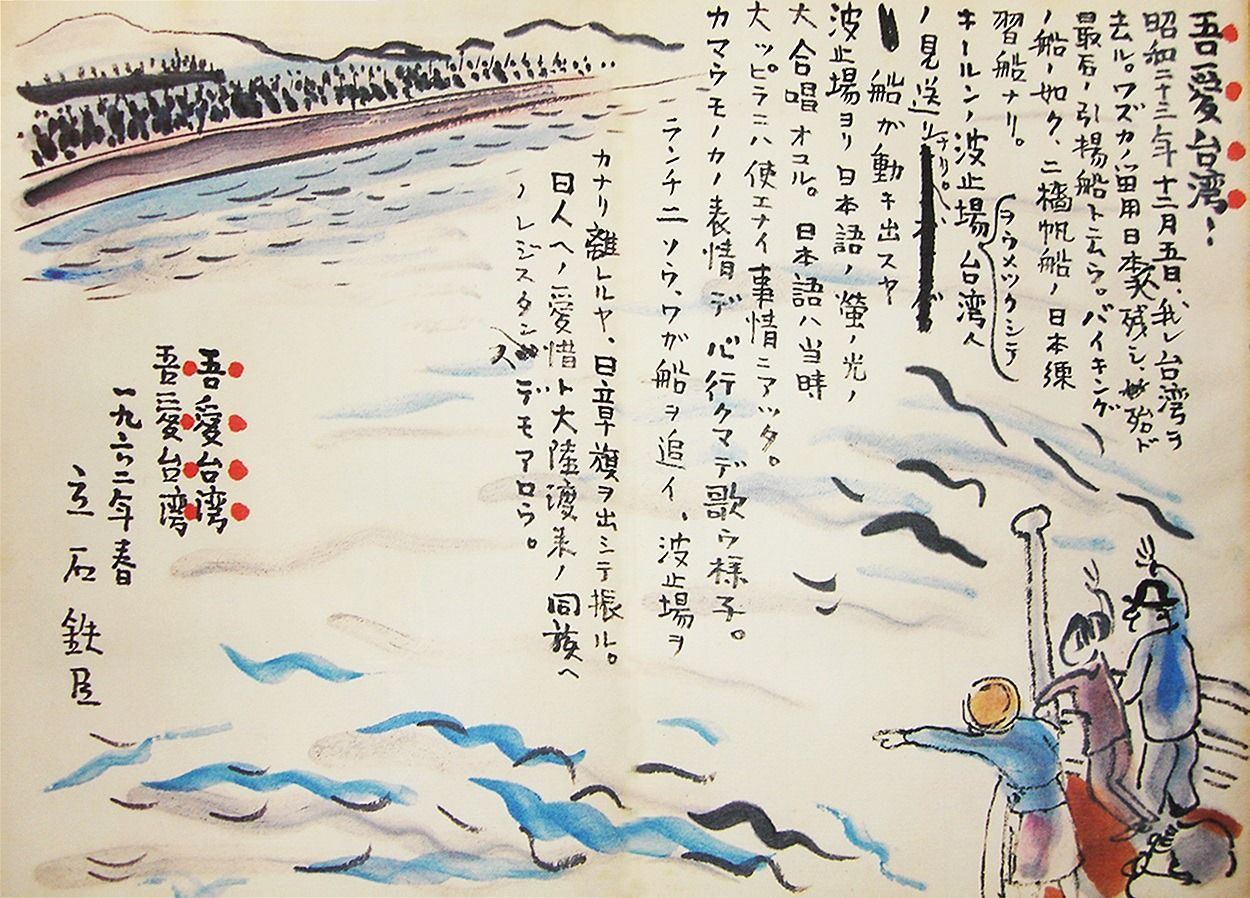 吾愛台湾!
昭和二十三年十二月五日、我レ台湾ヲ
去ル。ワズカノ留用日本人残シ、殆ド
最后ノ引揚船ト云ウ。バイキング
ノ船ノ如ク、二檣帆船ノ日本練
習船ナリ。
キールンノ波止場ヲウメツクシテ台湾人
ノ見送リナリ。
船が動キ出スヤ
波止場ヨリ日本語ノ螢ノ光ノ
大合唱オコル。日本語ハ当時
大ッピラニハ使エナイ事情ニアッタ。
カマウモノカノ表情デ行クマデ歌ウ様子。
ランチ二ソウ、ワガ船ヲ追イ、波止場ヲ
カナリ離レルヤ、日章旗ヲ出シテ振ル。
日人ヘノ愛惜ト大陸渡来ノ同族ヘ
ノレジスタンスデモアロウ。
吾愛台湾
吾愛台湾
一九六二年春
立石鉄臣